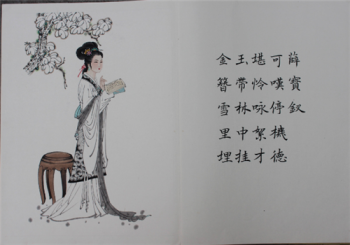 薛寶釵
可嘆停機德
堪怜咏絮才
玉帶林中挂
金簪雪里埋